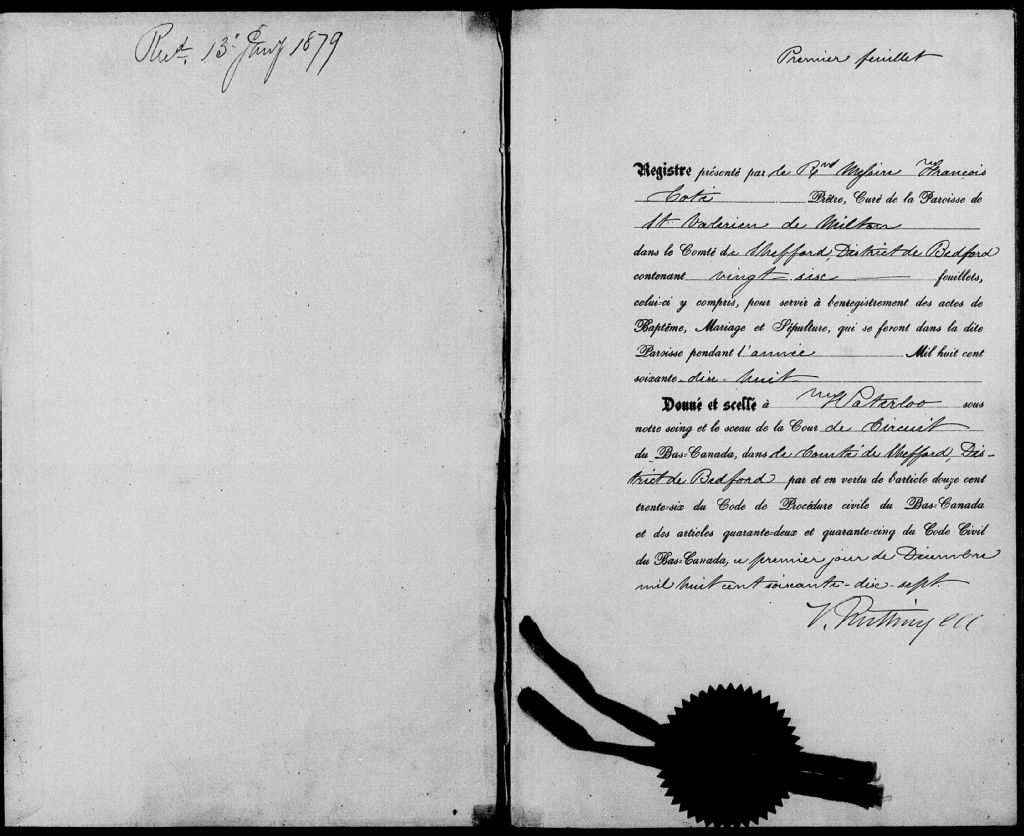 Recd. 13 Jany 1879
Premier feuillet
Registre présenté par le Rvd Messire François
Coté Prêtre, Curé de la Paroisse de
St Valerien de Milton
dans le Comté de Shefford, District de Bedford
contenant vingt six feuillets,
celui-ci y compris, pour servir à l'enregistrement des actes de
Baptême, Mariage et Sépulture, qui se feront dans la dite
Paroisse pendant l'année Mil huit cent
soixante-dix-huit
Donné et scellé à Waterloo sous
notre seing et le sceau de la Cour de Circuit
du Bas-Canada, dans le Comté de Shefford, Dis-
trict de Bedford par et en vertu de l'article douze cent
trente-six du Code de Procédure civile du Bas-Canada
et des articles quarante-deux et quarante-cinq du Code Civil
du Bas-Canada, ce premier jour de Décembre
mil huit cent soixante-dix-sept.